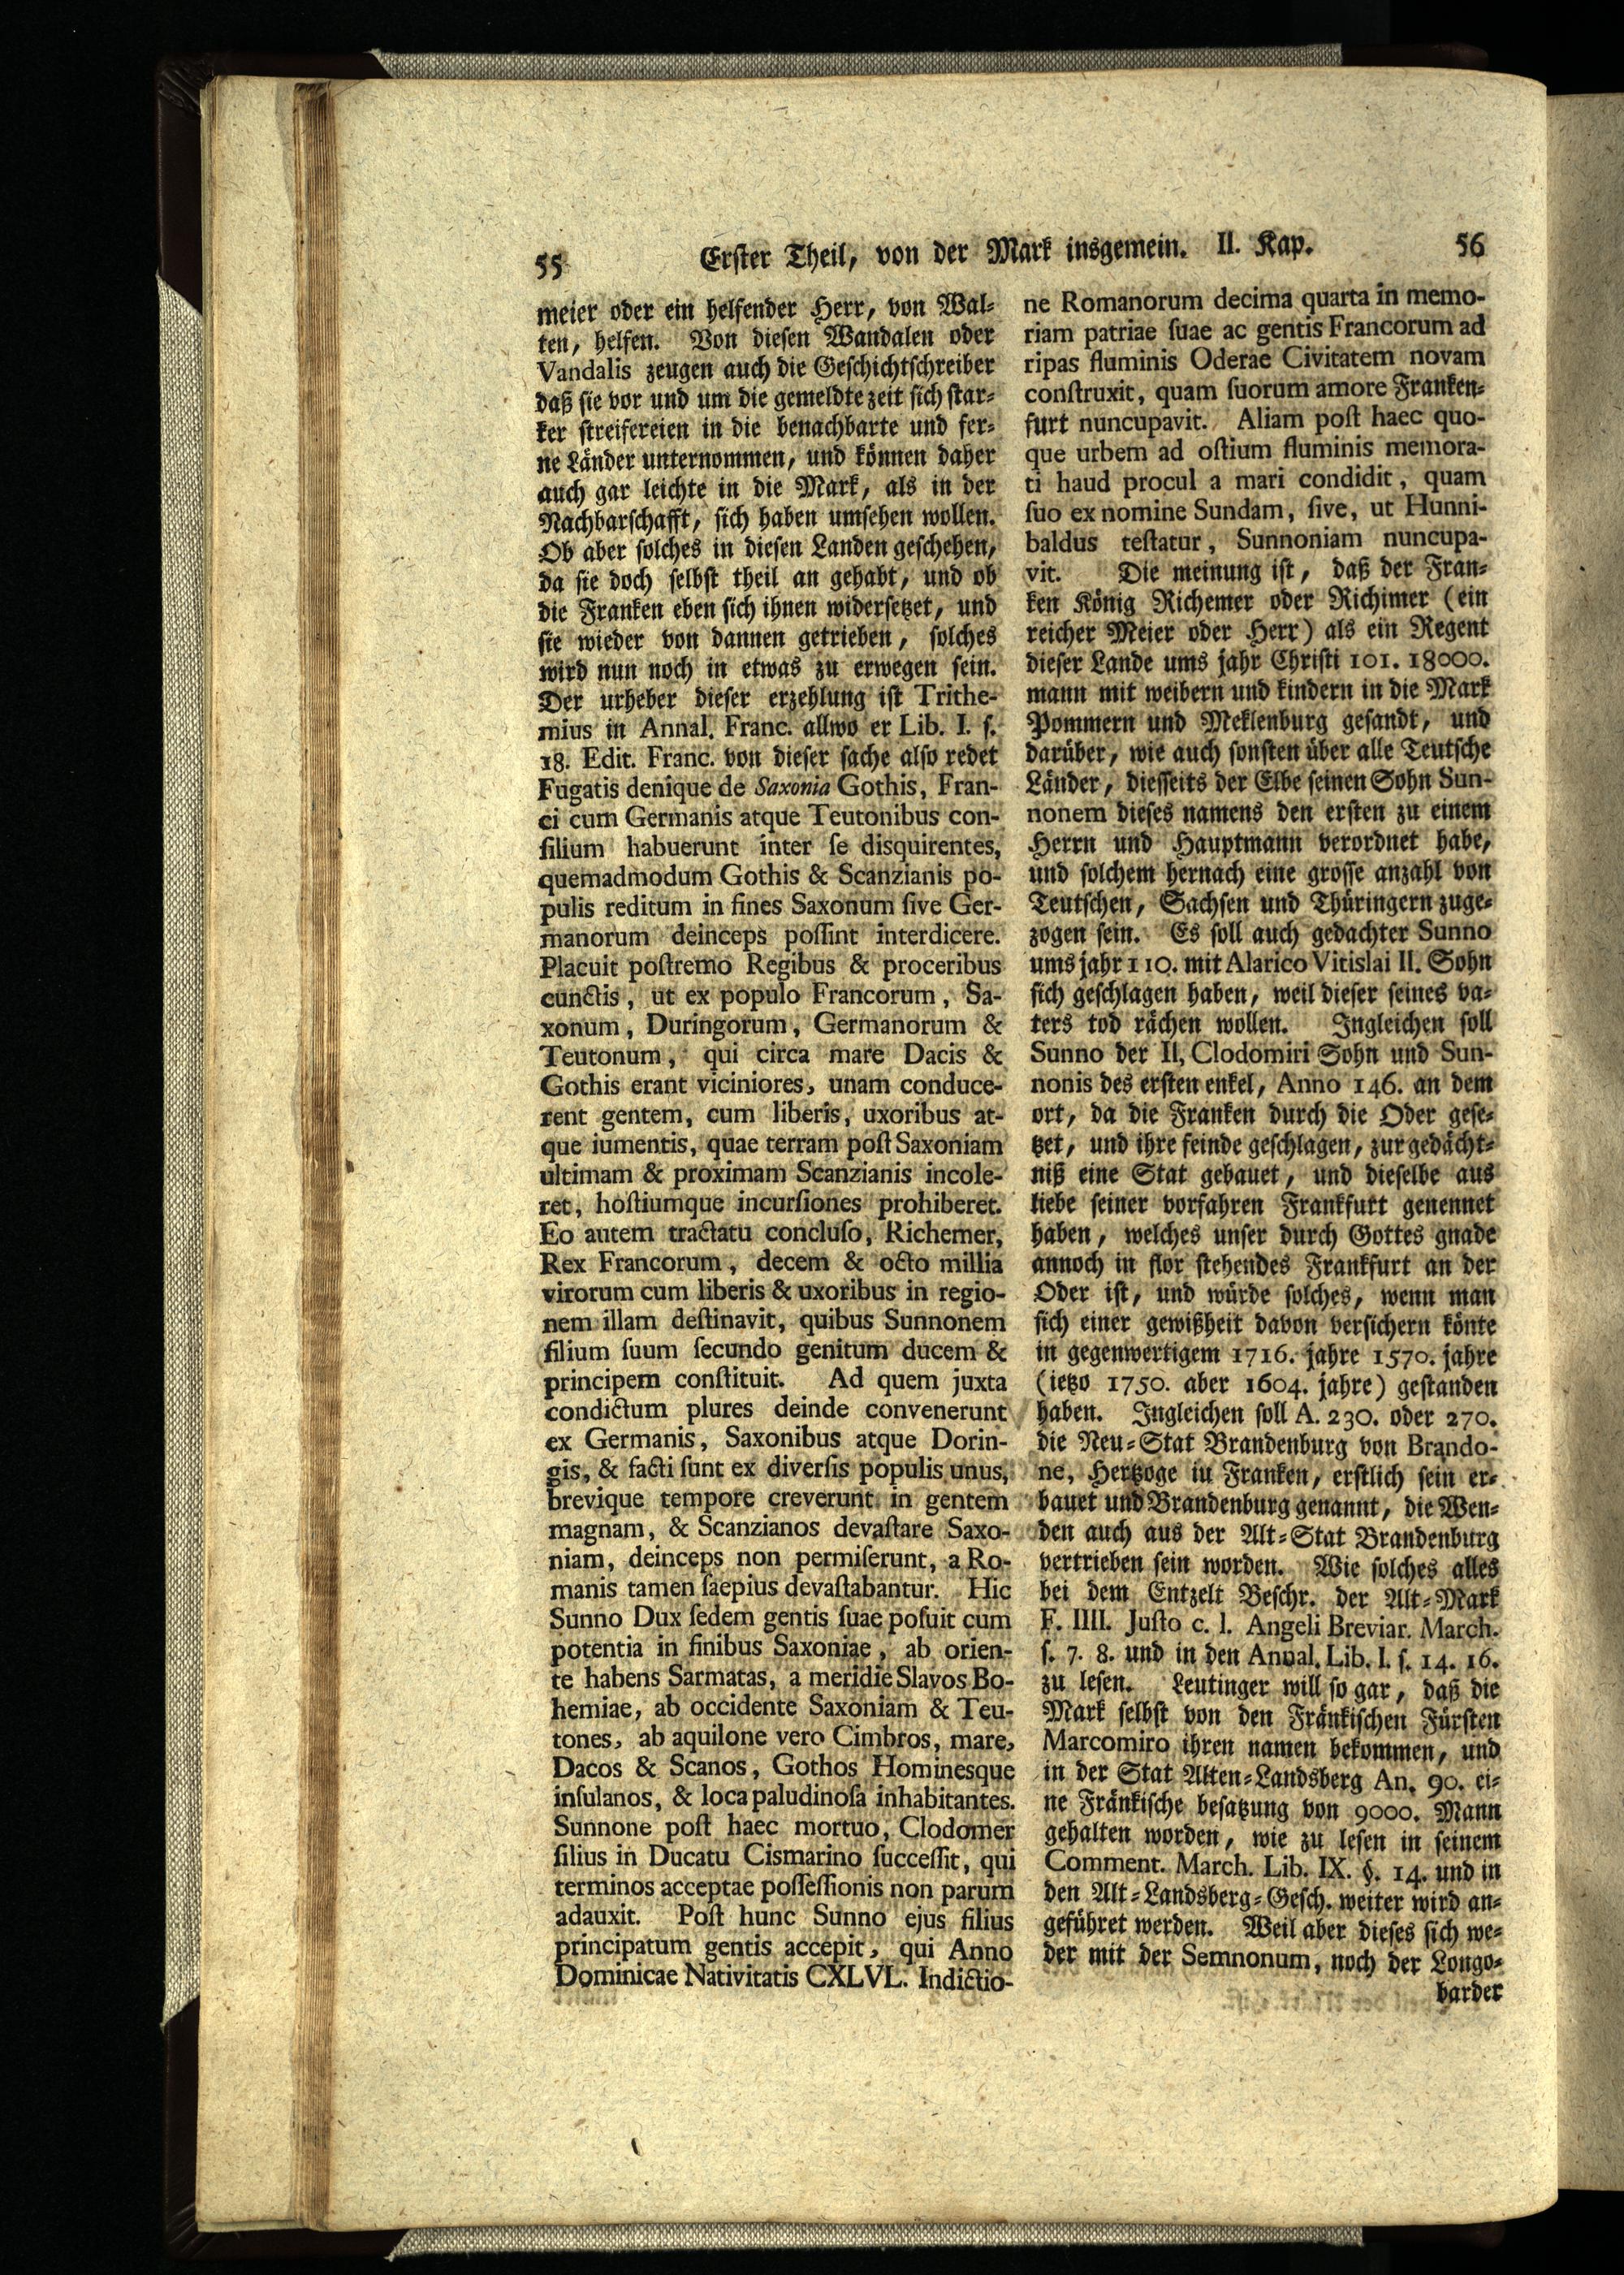 55 Erster Theil, von der Mark insgemein. II. Kap. 56
meier oder ein helfender Herr, von Wal-
ten, helfen. Von diesen Wandalen oder
Vandalis zeugen auch die Geschichtschreiber
daß sie vor und um die gemeldte zeit sich star-
ker streifereien in die benachbarte und fer-
ne Länder unternommen, und können daher
auch gar leichte in die Mark, als in der
Nachbarschafft, sich haben umsehen wollen.
Ob aber solches in diesen Landen geschehen,
da sie doch selbst theil an gehabt, und ob
die Franken eben sich ihnen widersetzet, und
sie wieder von dannen getrieben, solches
wird nun noch in etwas zu erwegen sein.
Der urheber dieser erzehlung ist Trithe-
mius in Annal. Franc. allwo er Lib. I. s.
18. Edit. Franc. von dieser sache also redet
Fugatis denique de Saxonia Gothis, Fran-
ci cum Germanis atque Teutonibus con-
silium habuerunt inter se disquirentes,
quemadmodum Gothis & Scanzianis po-
pulis reditum in fines Saxonum sive Ger-
manorum deinceps possint interdicere.
Placuit postremo Regibus & proceribus
cunctis, ut ex populo Francorum, Sa-
xonum, Duringorum, Germanorum &
Teutonum, qui circa mare Dacis &
Gothis erant viciniores, unam conduce-
rent gentem, cum liberis, uxoribus at-
que iumentis, quae terram post Saxoniam
ultimam & proximam Scanzianis incole-
ret, hostiumque incursiones prohiberet.
Eo autem tractatu concluso, Richemer,
Rex Francorum, decem & octo millia
virorum cum liberis & uxoribus in regio-
nem illam destinavit, quibus Sunnonem
filium suum secundo genitum ducem &
principem constituit. Ad quem juxta
condictum plures deinde convenerunt
ex Germanis, Saxonibus atque Dorin-
gis, & facti sunt ex diversis populis unus,
brevique tempore creverunt in gentem
magnam, & Scanzianos devastare Saxo-
niam, deinceps non permiserunt, a Ro-
manis tamen saepius devastabantur. Hic
Sunno Dux sedem gentis suae posuit cum
potentia in finibus Saxoniae, ab orien-
te habens Sarmatas, a meridie Slavos Bo-
hemiae, ab occidente Saxoniam & Teu-
tones, ab aquilone vero Cimbros, mare,
Dacos & Scanos, Gothos Hominesque
insulanos, & loca paludinosa inhabitantes.
Sunnone post haec mortuo, Clodomer
filius in Ducatu Cismarino successit, qui
terminos acceptae possessionis non parum
adauxit. Post hunc Sunno ejus filius
principatum gentis accepit, qui Anno
Dominicae Nativitatis CXLVL. Indictio-
ne Romanorum decima quarta in memo-
riam patriae suae ac gentis Francorum ad
ripas fluminis Oderae Civitatem novam
construxit, quam suorum amore Franken-
furt nuncupavit. Aliam post haec quo-
que urbem ad ostium fluminis memora-
ti haud procul a mari condidit, quam
suo ex nomine Sundam, sive, ut Hunni-
baldus testatur, Sunnoniam nuncupa-
vit. Die meinung ist, daß der Fran-
ken König Richemer oder Richimer (ein
reicher Meier oder Herr) als ein Regent
dieser Lande ums jahr Christi 101. 18000.
mann mit weibern und kindern in die Mark
Pommern und Meklenburg gesandt, und
darüber, wie auch sonsten über alle Teutsche
Länder, diesseits der Elbe seinen Sohn Sun-
nonem dieses namens den ersten zu einem
Herrn und Hauptmann verordnet habe,
und solchem hernach eine grosse anzahl von
Teutschen, Sachsen und Thüringern zuge-
zogen sein. Es soll auch gedachter Sunno
ums jahr 110. mit Alarico Vitislai II. Sohn
sich geschlagen haben, weil dieser seines va-
ters tod rächen wollen. Ingleichen soll
Sunno der II, Clodomiri Sohn und Sun-
nonis des ersten enkel, Anno 146. an dem
ort, da die Franken durch die Oder gese-
tzet, und ihre feinde geschlagen, zur gedächt-
niß eine Stat gebauet, und dieselbe aus
liebe seiner vorfahren Frankfurt genennet
haben, welches unser durch Gottes gnade
annoch in flor stehendes Frankfurt an der
Oder ist, und würde solches, wenn man
sich einer gewißheit davon versichern könte
in gegenwertigem 1716. jahre 1570. jahre
(ietzo 1750. aber 1604. jahre) gestanden
haben. Ingleichen soll A. 230. oder 270.
die Neu-Stat Brandenburg von Brando-
ne, Hertzoge in Franken, erstlich sein er-
bauet und Brandenburg genannt, die Wen-
den auch aus der Alt-Stat Brandenburg
vertrieben sein worden. Wie solches alles
bei dem Entzelt Beschr. der Alt-Mark
F. IIII. Justo c. l. Angeli Breviar. March.
s. 7. 8. und in den Annal. Lib. I. s. 14. 16.
zu lesen. Leutinger will so gar, daß die
Mark selbst von den Fränkischen Fürsten
Marcomiro ihren namen bekommen, und
in der Stat Alten-Landsberg An. 90. ei-
ne Fränkische besatzung von 9000. Mann
gehalten worden, wie zu lesen in seinem
Comment. March. Lib. IX. §. 14. und in
den Alt-Landsberg-Gesch. weiter wird an-
geführet werden. Weil aber dieses sich we-
der mit der Semnonum, noch der Longo-
barder